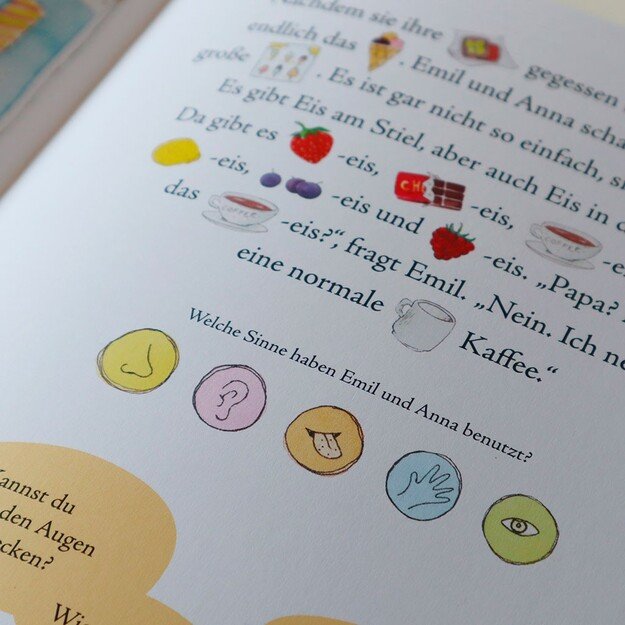 Nachdem sie ihre gegessen
endlich das . Emil und Anna scha
große . Es ist gar nicht so einfach, si
Es gibt Eis am Stiel, aber auch Eis in d
Da gibt es -eis, CH -eis, COFFEE -e
-eis, -eis und -eis. „Papa?
das COFFEE -eis?“, fragt Emil. „Nein. Ich ne
eine normale Kaffee.“
Welche Sinne haben Emil und Anna benutzt?
Kannst du
den Augen
ecken?
Wi